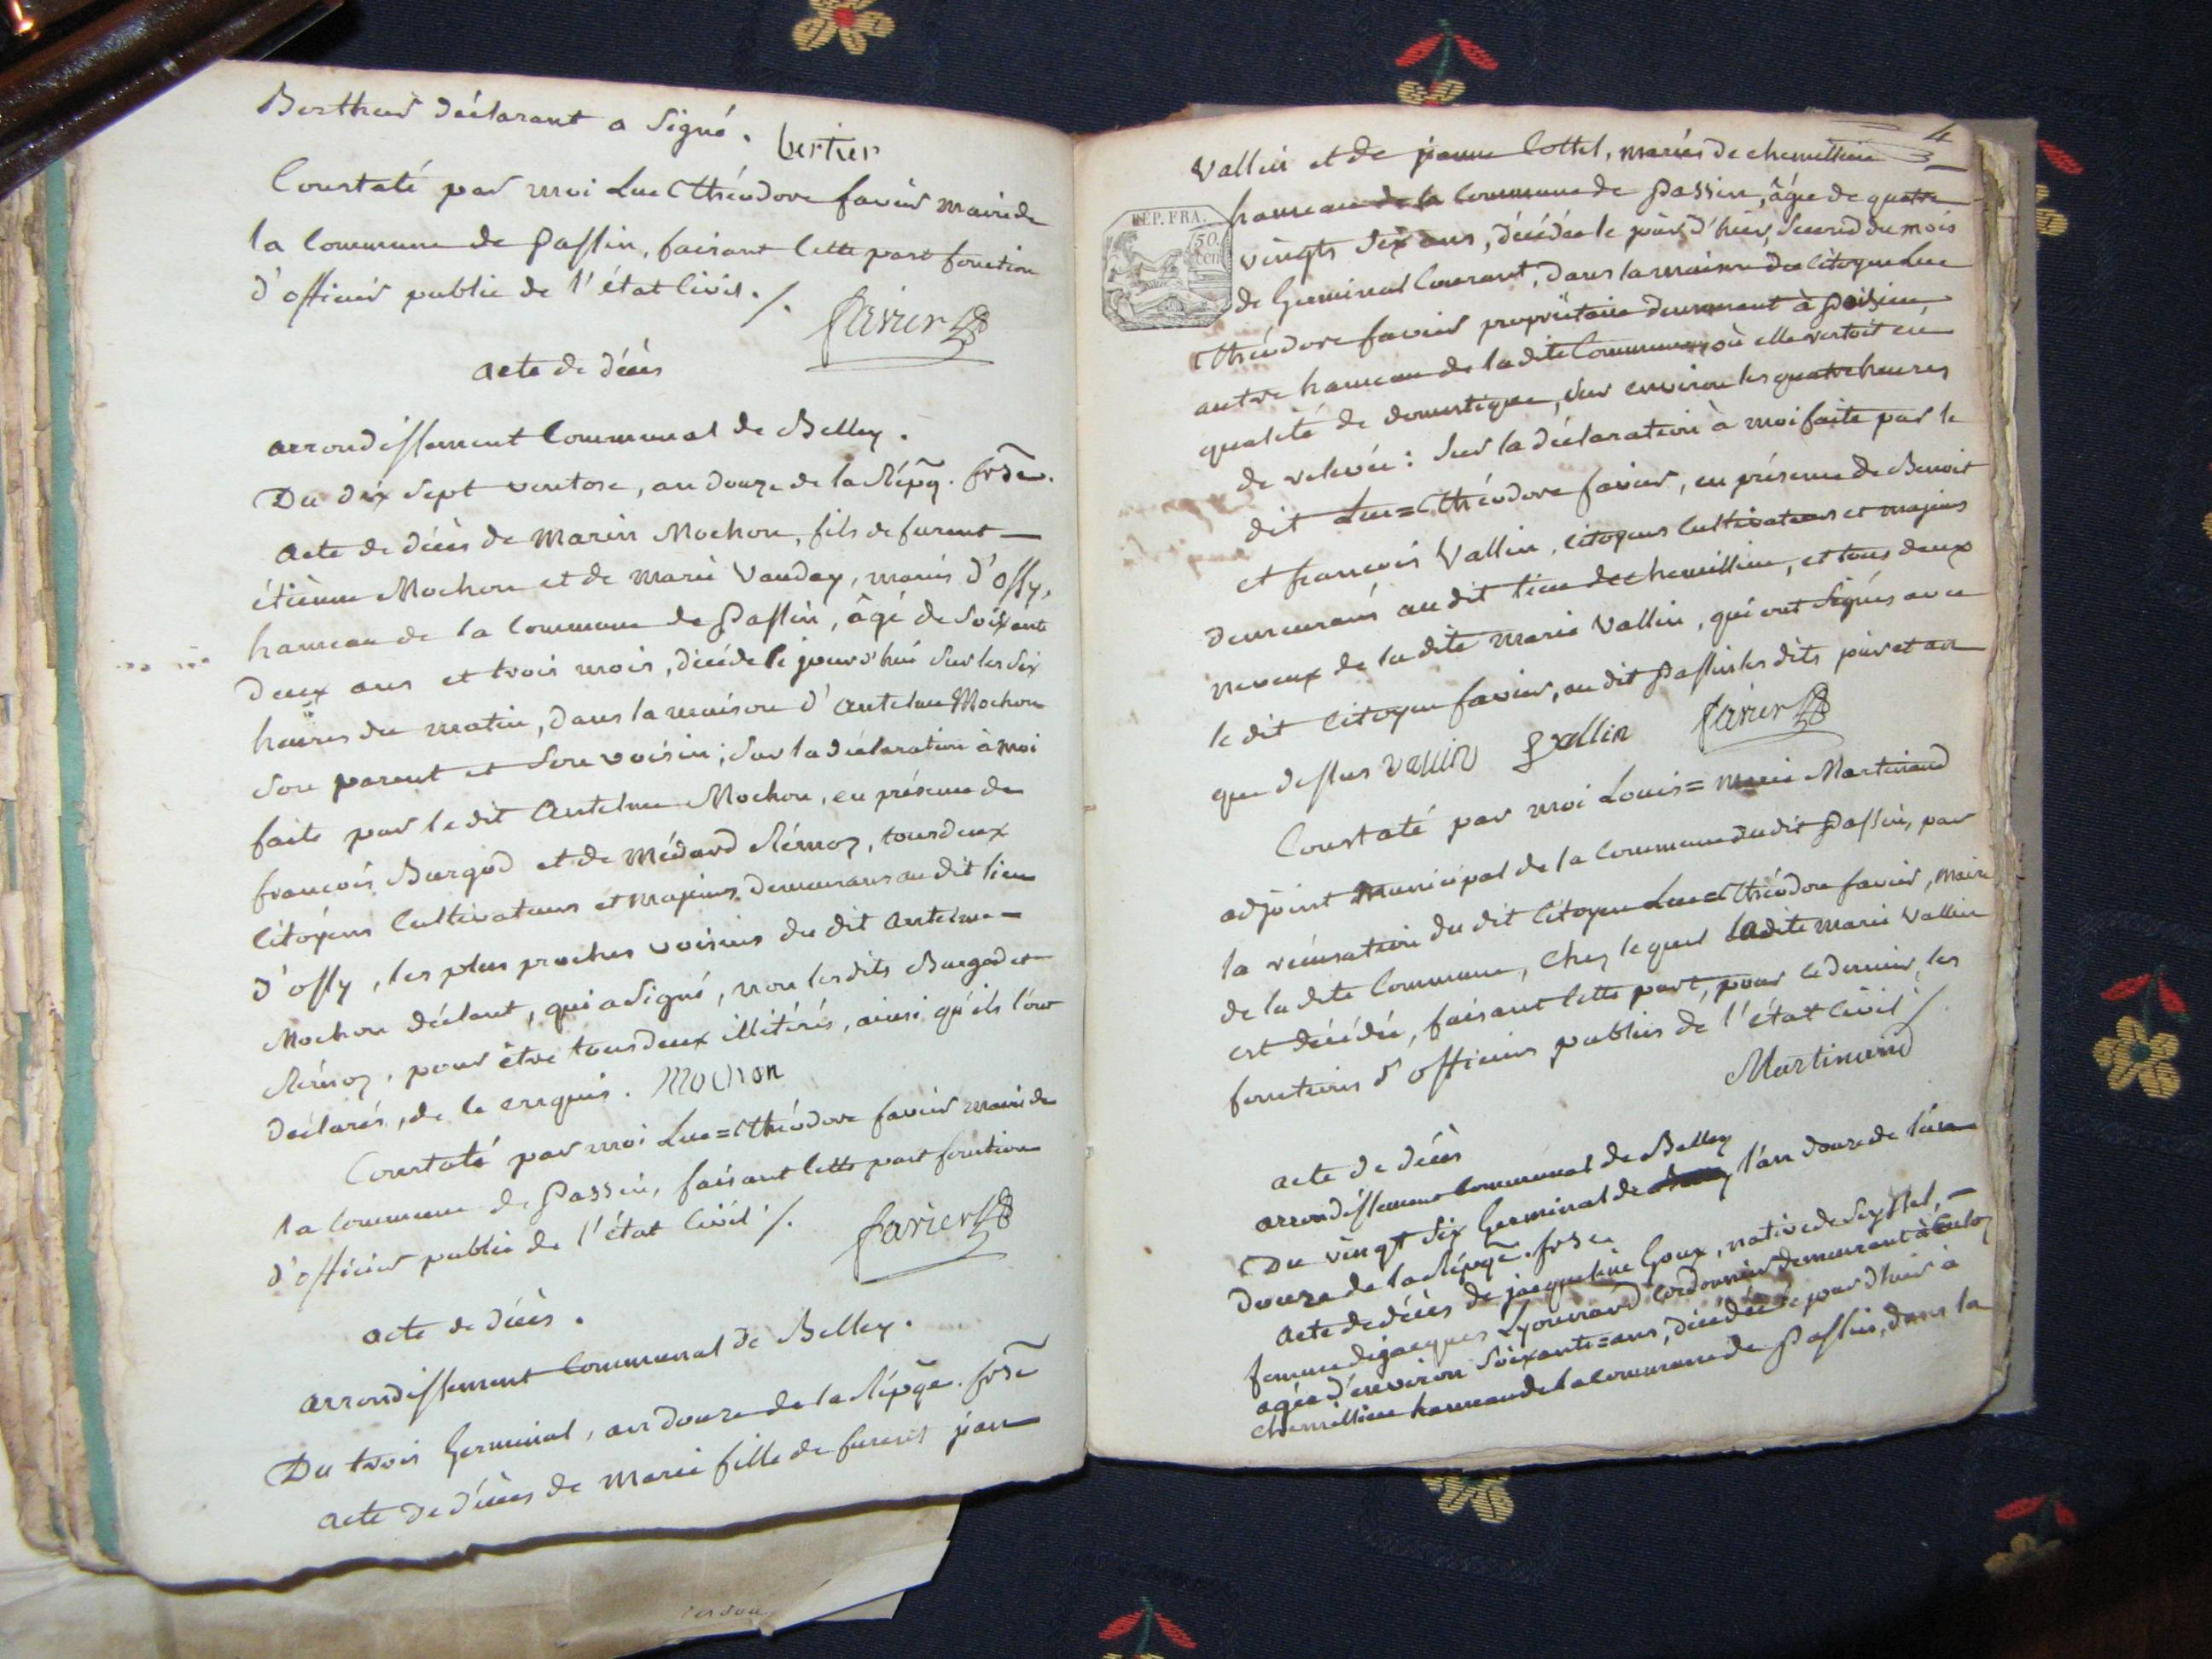 Berthier déclarant a signé. bertier
Constaté par moi Luc Théodore favier maire de
la Commune de Passin, faisant cette part fonction
d'officier public de l'état Civil ./. favier
acte de décès
arrondissement Communal de Belley.
Du dix sept ventose, an douze de la Répq. frse.
acte de décès de Marin Mochon, fils de furent
étiènne Mochon et de marie Vauday, mariés d'ossy,
hameau de la Commune de Passin, âgé de soixante
deux ans et trois mois, décédé le jourd'hui sur les six
heures du matin, dans la maison d'antelme Mochon
son parent et son voisin; sur la déclaration à moi
faite par le dit Antelme Mochon, en présence de
françois Burgod et de Médard Rémoz, tous deux
Citoyens Cultivateurs et majeurs demeurans au dit lieu
d'ossy, les plus proches voisins du dit antelme
Mochon déclant, qui a signé, non les dits Burgod et
Rémoz, pour être tous deux illitérés, ainsi qu'ils l'ont
déclarés, de ce enquis. mochon
Constaté par moi Luc=Théodore favier maire de
la Commune de Passin, faisant cette part fonction
d'officier public de l'état Civil ./. favier
acte de décès.
arrondissement Communal de Belley.
Du trois Germinal, an douze de la Répqe. frse
acte de décès de marie fille de furent jean
4
REP. FRA.
50 cen
Vallin et de jeanne Cottel, mariés de chemillieu
hameau de la Commune de Passin, âgée de quatre
vingts dix ans, décédée le jour d'hier, second du mois
de Germinal Courant, dans la maison du Citoyen Luc
Théodore favier propriétaire demeurant à Poisieu
autre hameau de la dite Commune, où elle restoit en
qualité de domestique, sur environ les quatre heures
de relevée: sur la déclaration à moi faite par le
dit Luc=Théodore favier, en présence de Benoit
et francois Vallin, citoyens Cultivateurs et majeurs
demeurans au dit lieu de chemillieu, et tous deux
neveux de la dite marie Vallin, qui ont signés avec
le dit Citoyen favier, au dit Passin les dits jour et an
que dessus vallin f vallin favier
Constaté par moi Louis=marie Martinand
adjoint municipal de la Commune du dit Passin, par
la récusation du dit Citoyen Luc=Théodore favier, maire
de la dite Commune, Chez lequel ladite marie Vallin
est décédée, faisant cette part, pour ce dernier, les
fonctions d'officiers publics de l'état Civil ./.
Martinand
acte de décès
arrondissement Communal de Belley
Du vingt six Germinal de l'an douze de l'ère
douze de la Répqe. frse
acte de décès de jacqueline Goux, native de Seyssel,
femme de jacques Lyonnard Cordonnier demeurant à Culoz
agée d'environ soixante=ans, décédée le jour d'hier à
chemillieu hameau de la commune de Passin, dans la